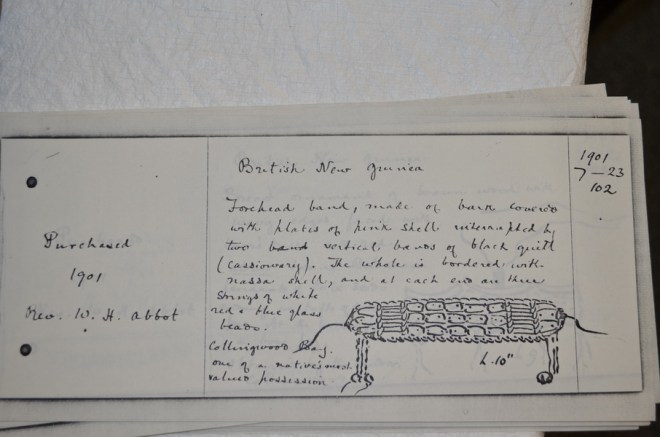 Purchased
1901
Rev. W. H. Abbot
British New Guinea
Forehead band, made of bark covered
with plates of pink shell interrupted by
two band vertical bands of black quill
(cassiowary). The whole is bordered with
nassa shell, and at each end are three
strings of white
red & blue glass
beads.
Collingwood Bay.
one of a native's most
valued possession
L. 10"
1901
7-23
102